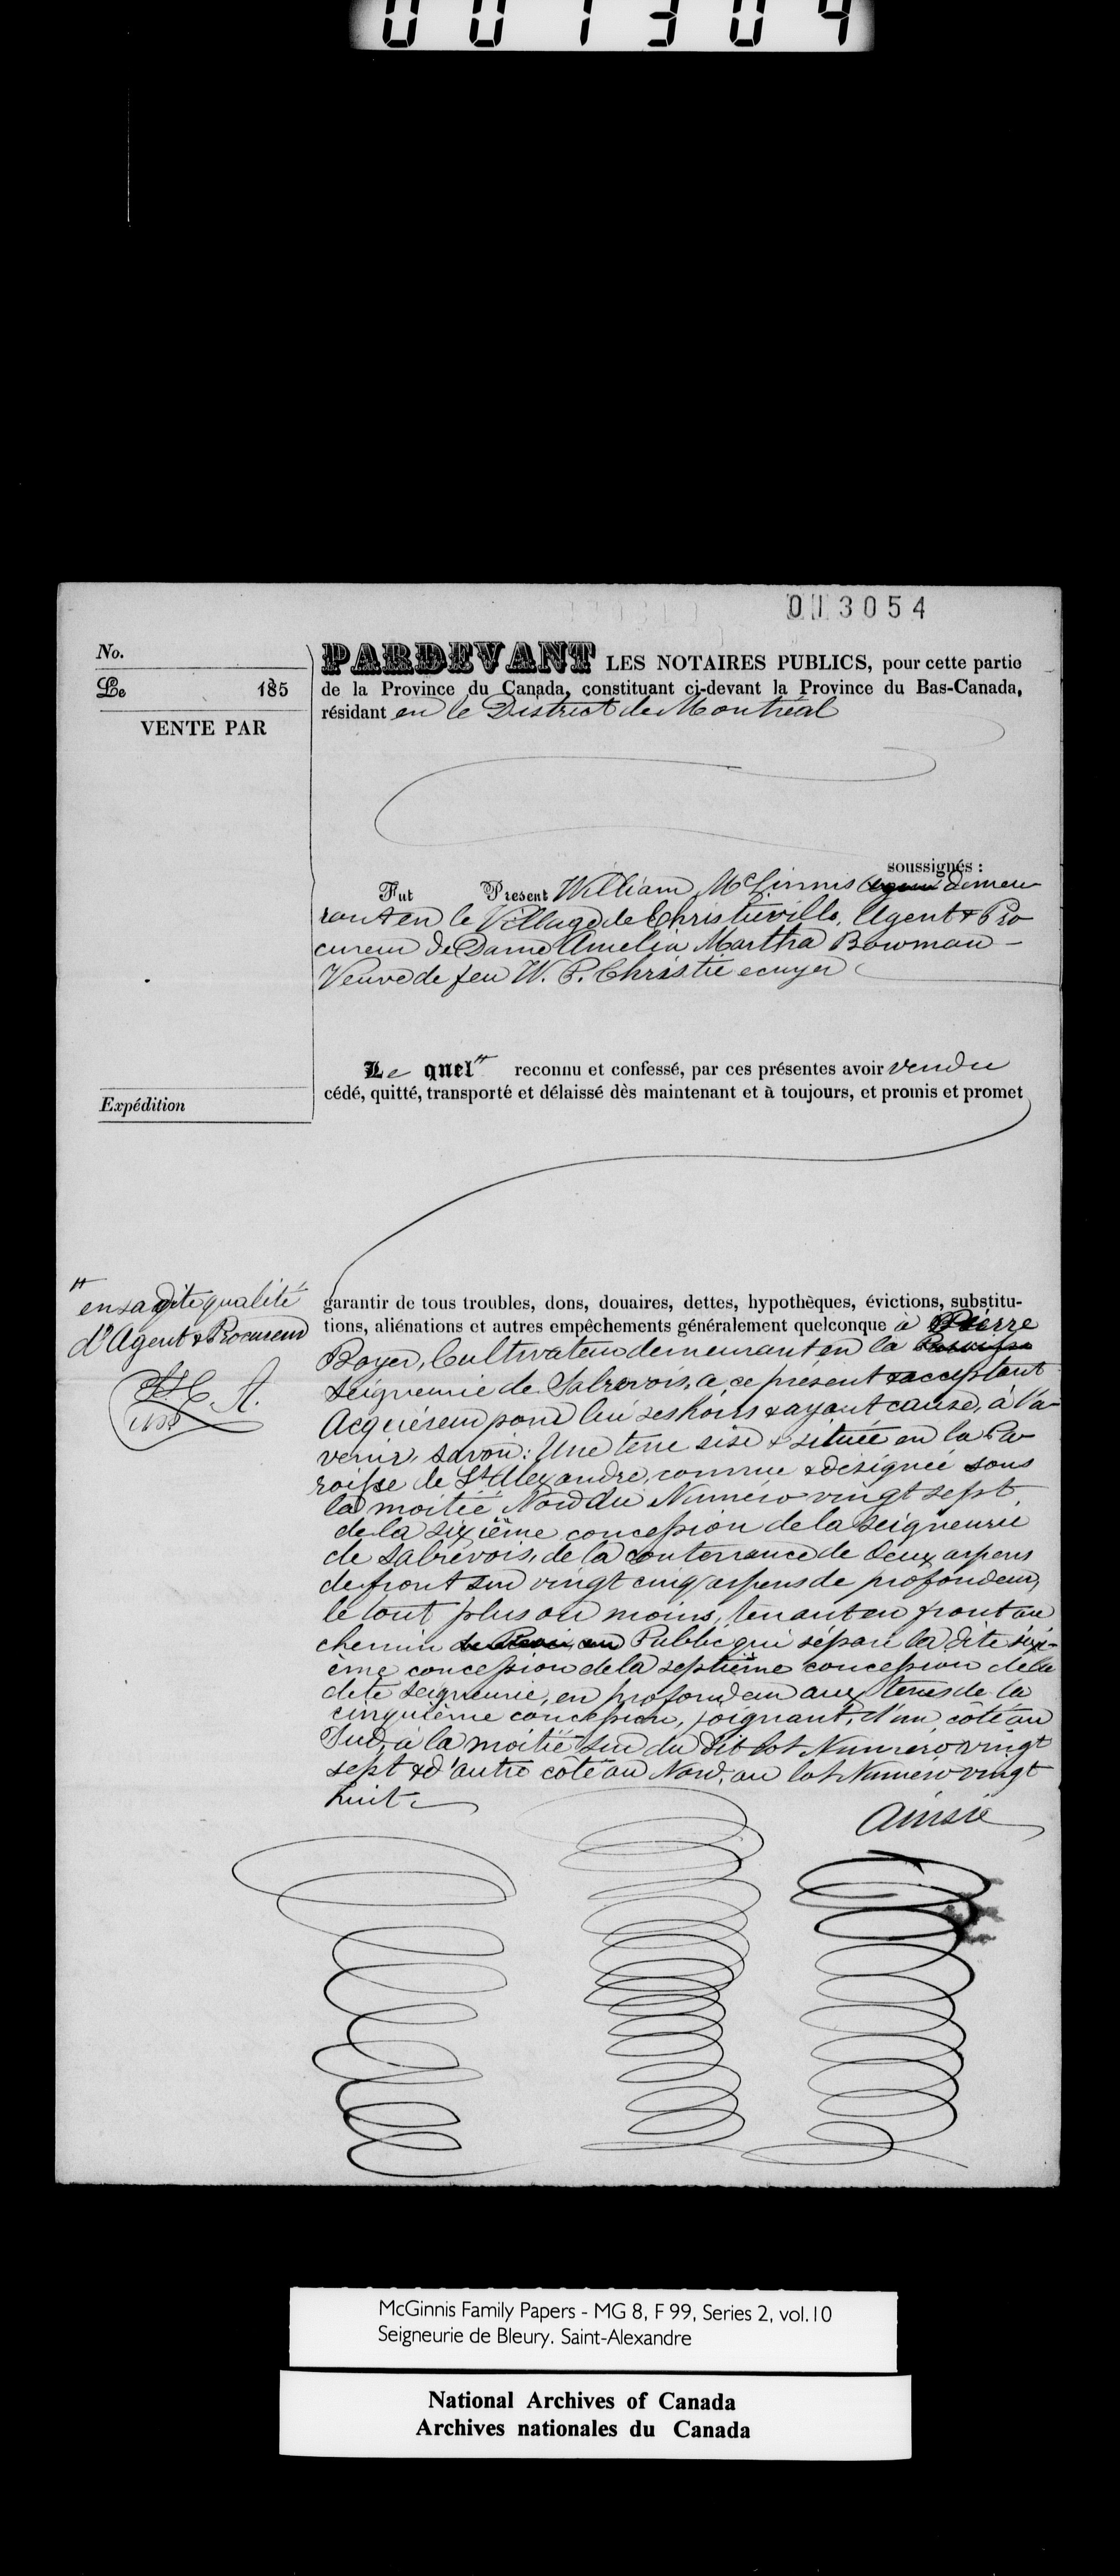 001304
013054
No.
Le 185
VENTE PAR
Expédition
PARDEVANT LES NOTAIRES PUBLICS, pour cette partie
de la Province du Canada, constituant ci-devant la Province du Bas-Canada,
résidant en le District de Montréal
soussignés :
Fut Present William McGinnis demeu
rant en le Village de Christieville, Agent & Pro
cureur de Dame Amelia Martha Bowman -
Veuve de feu W. P. Christie ecuyer
Le quel # reconnu et confessé, par ces présentes avoir vendu
cédé, quitté, transporté et délaissé dès maintenant et à toujours, et promis et promet
# en sa dite qualité
d'Agent & Procureur
garantir de tous troubles, dons, douaires, dettes, hypothèques, évictions, substitu-
tions, aliénations et autres empêchements généralement quelconque à Pierre
Boyer, Cultivateur demeurant en la Paroisse
Seigneurie de Sabrevois, a ce présent & acceptant
Acquéreur pour lui ses hoirs & ayant cause, à l'a-
venir, savoir: Une terre sise & située en la Pa
roisse de St Alexandre, connue & désignée sous
la moitié Nord du Numéro vingt sept,
de la sixième concession de la Seigneurie
de Sabrevois, de la contenance de deux arpens
de front sur vingt cinq arpens de profondeur,
le tout plus ou moins, tenant en front au
chemin Public qui sépare la dite sixi-
ème concession de la septième concession de la
dite Seigneurie, en profondeur aux terres de la
cinquième concession, joignant, d'un côté au
Sud, à la moitié sud du dit lot Numero vingt
sept & d'autre côté au Nord, au lot Numéro vingt
huit
Ainsi
McGinnis Family Papers - MG 8, F 99, Series 2, vol.10
Seigneurie de Bleury. Saint-Alexandre
National Archives of Canada
Archives nationales du Canada